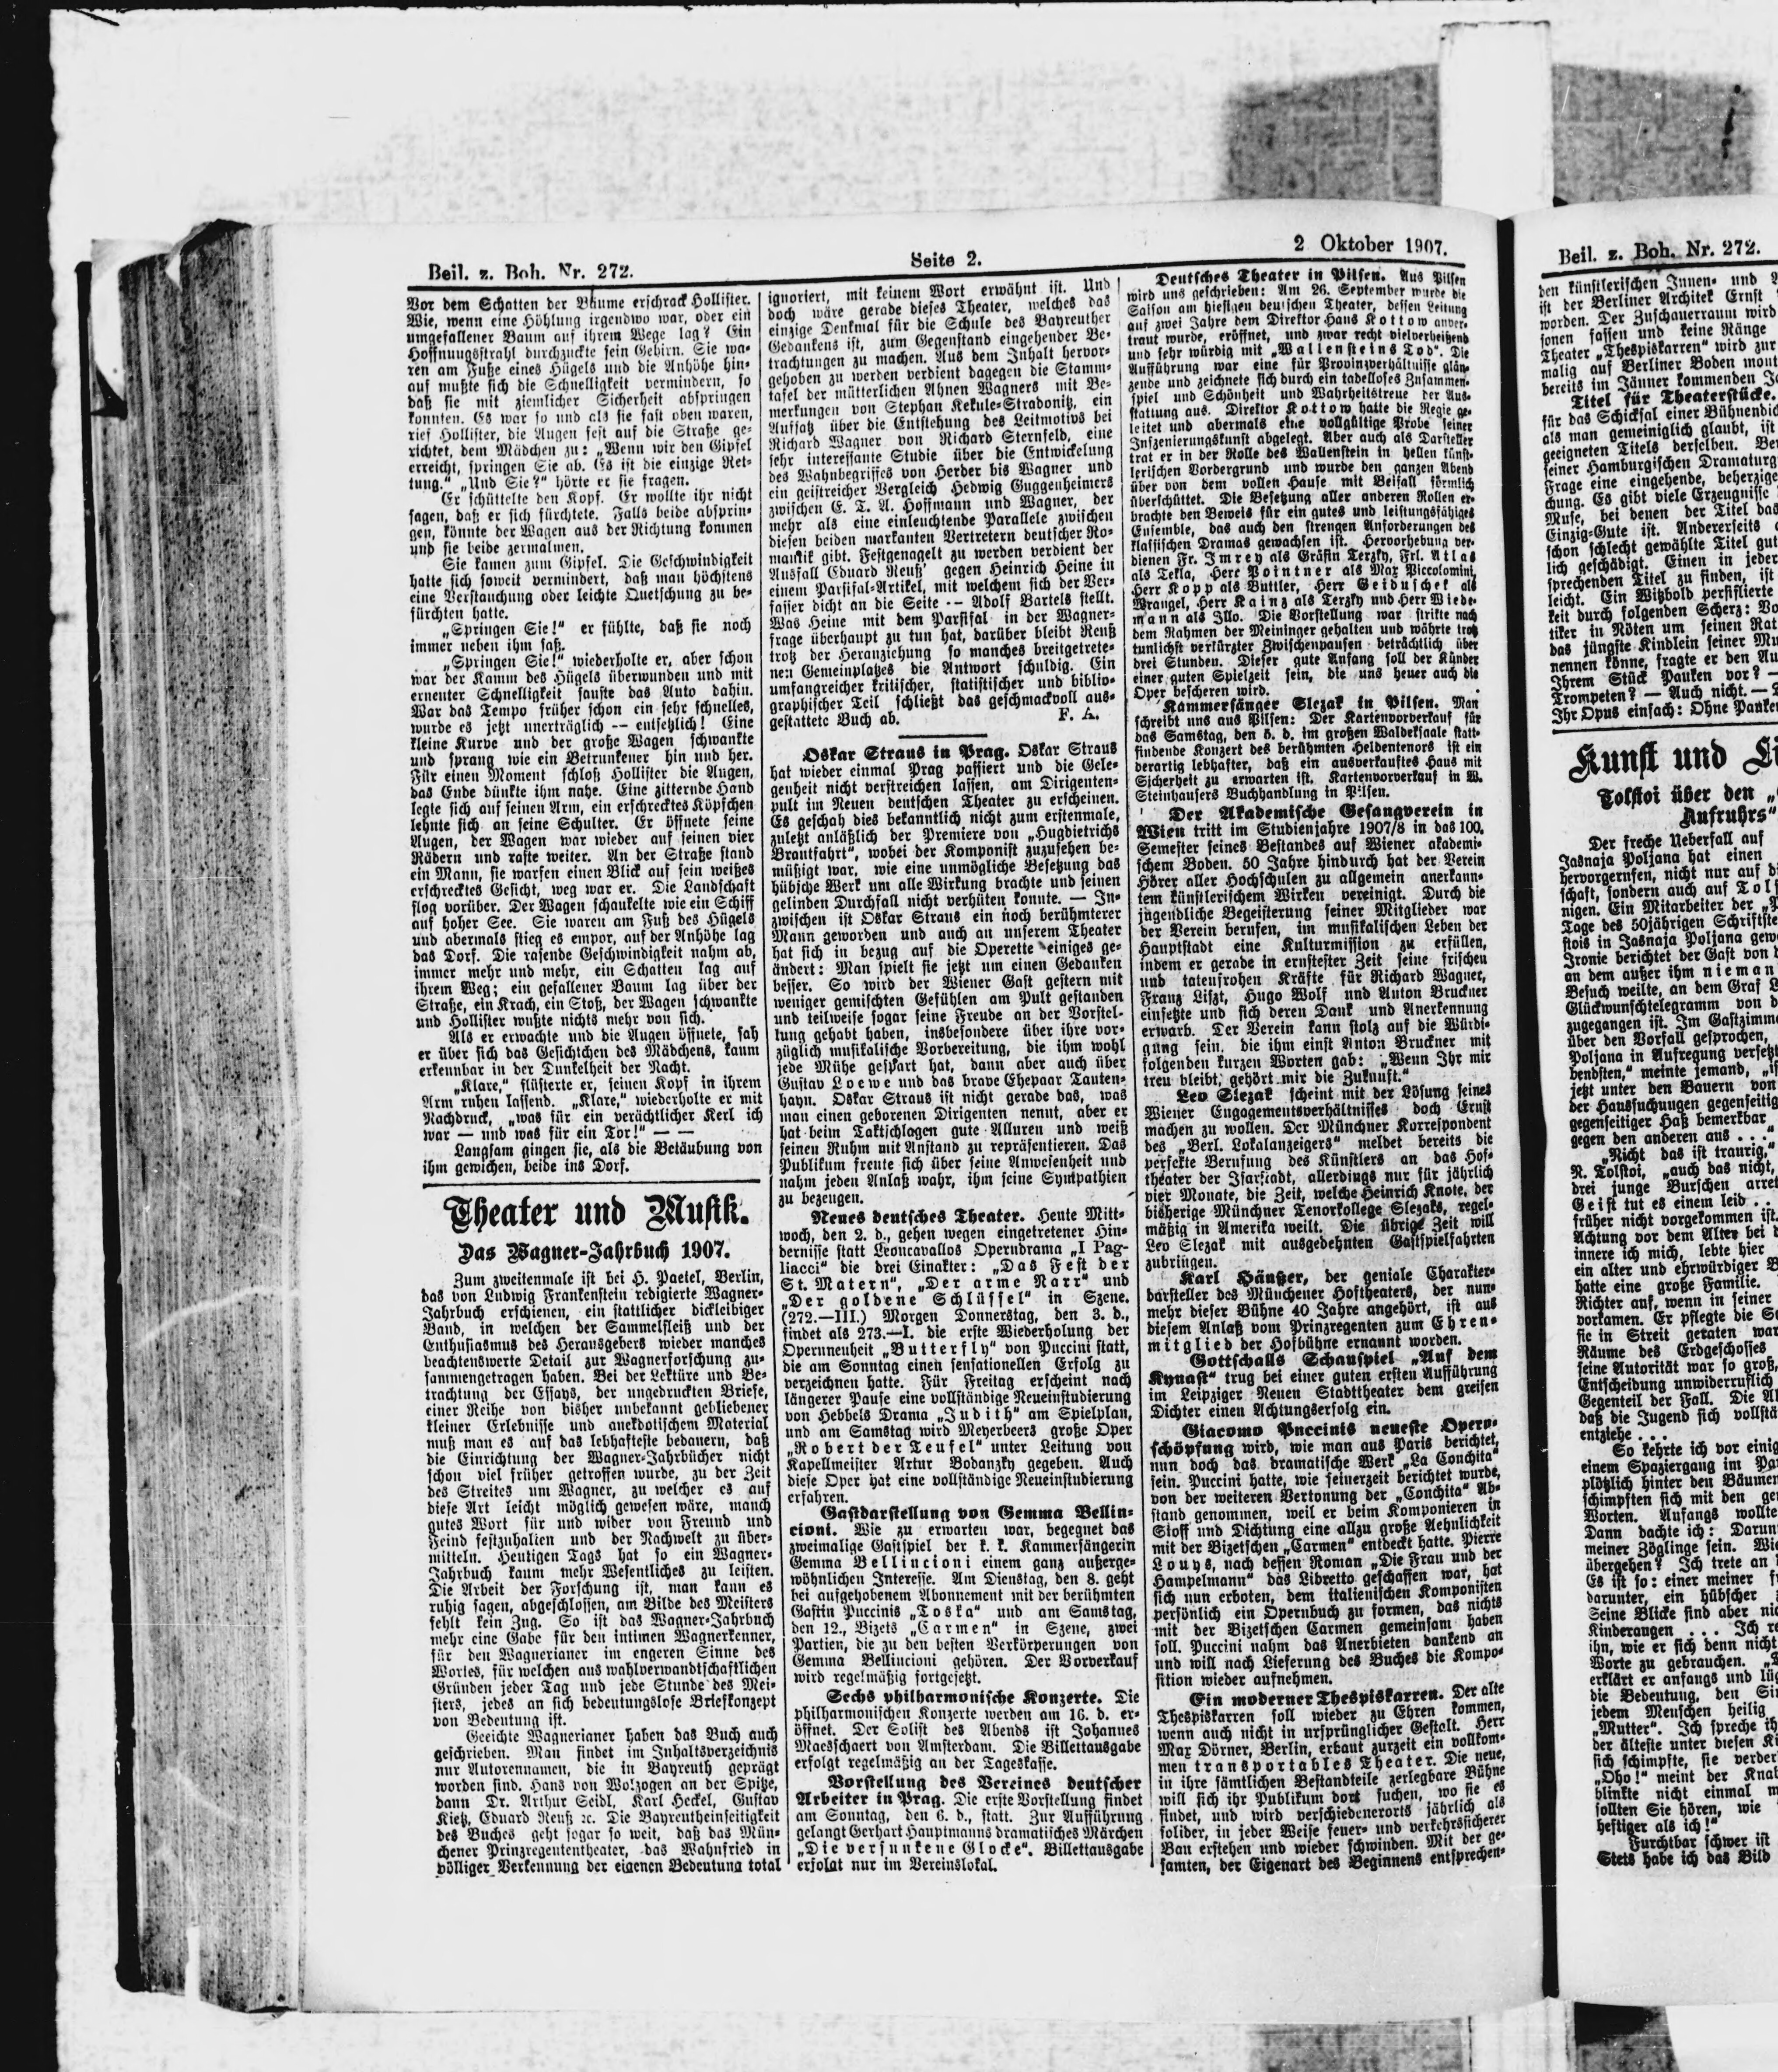 Beil. z. Boh. Nr. 272.
Seite 2.
2 Oktober 1907.
Vor dem Schatten der Bäume erschrack Hollister.
Wie, wenn eine Höhlung irgendwo war, oder ein
umgefallener Baum auf ihrem Wege lag? Ein
Hoffnungsstrahl durchzuckte sein Gehirn. Sie wa-
ren am Fuße eines Hügels und die Anhöhe hin-
auf mußte sich die Schnelligkeit vermindern, so
daß sie mit ziemlicher Sicherheit abspringen
konnten. Es war so und als sie fast oben waren,
rief Hollister, die Augen fest auf die Straße ge-
richtet, dem Mädchen zu: „Wenn wir den Gipfel
erreicht, springen Sie ab. Es ist die einzige Ret-
tung.“ „Und Sie?“ hörte er sie fragen.
Er schüttelte den Kopf. Er wollte ihr nicht
sagen, daß er sich fürchtete. Falls beide absprin-
gen, könnte der Wagen aus der Richtung kommen
und sie beide zermalmen.
Sie kamen zum Gipfel. Die Geschwindigkeit
hatte sich soweit vermindert, daß man höchstens
eine Verstauchung oder leichte Quetschung zu be-
fürchten hatte.
„Springen Sie!“ er fühlte, daß sie noch
immer neben ihm saß.
„Springen Sie!“ wiederholte er, aber schon
war der Kamm des Hügels überwunden und mit
erneuter Schnelligkeit sauste das Auto dahin.
War das Tempo früher schon ein sehr schnelles,
wurde es jetzt unerträglich -- entsetzlich! Eine
kleine Kurve und der große Wagen schwankte
und sprang wie ein Betrunkener hin und her.
Für einen Moment schloß Hollister die Augen,
das Ende dünkte ihm nahe. Eine zitternde Hand
legte sich auf seinen Arm, ein erschrecktes Köpfchen
lehnte sich an seine Schulter. Er öffnete seine
Augen, der Wagen war wieder auf seinen vier
Rädern und raste weiter. An der Straße stand
ein Mann, sie warfen einen Blick auf sein weißes
erschrecktes Gesicht, weg war er. Die Landschaft
flog vorüber. Der Wagen schaukelte wie ein Schiff
auf hoher See. Sie waren am Fuß des Hügels
und abermals stieg es empor, auf der Anhöhe lag
das Dorf. Die rasende Geschwindigkeit nahm ab,
immer mehr und mehr, ein Schatten lag auf
ihrem Weg; ein gefallener Baum lag über der
Straße, ein Krach, ein Stoß, der Wagen schwankte
und Hollister wußte nichts mehr von sich.
Als er erwachte und die Augen öffnete, sah
er über sich das Gesichtchen des Mädchens, kaum
erkennbar in der Dunkelheit der Nacht.
„Klare,“ flüsterte er, seinen Kopf in ihrem
Arm ruhen lassend. „Klare,“ wiederholte er mit
Nachdruck, „was für ein verächtlicher Kerl ich
war — und was für ein Tor!“ — —
Langsam gingen sie, als die Betäubung von
ihm gewichen, beide ins Dorf.
Theater und Musik.
Das Wagner-Jahrbuch 1907.
Zum zweitenmale ist bei H. Paetel, Berlin,
das von Ludwig Frankenstein redigierte Wagner-
Jahrbuch erschienen, ein stattlicher dickleibiger
Band, in welchen der Sammelfleiß und der
Enthusiasmus des Herausgebers wieder manches
beachtenswerte Detail zur Wagnerforschung zu-
sammengetragen haben. Bei der Lektüre und Be-
trachtung der Essays, der ungedruckten Briefe,
einer Reihe von bisher unbekannt gebliebener
kleiner Erlebnisse und anekdotischem Material
muß man es auf das lebhafteste bedauern, daß
die Einrichtung der Wagner-Jahrbücher nicht
schon viel früher getroffen wurde, zu der Zeit
des Streites um Wagner, zu welcher es auf
diese Art leicht möglich gewesen wäre, manch
gutes Wort für und wider von Freund und
Feind festzuhalten und der Nachwelt zu über-
mitteln. Heutigen Tags hat so ein Wagner-
Jahrbuch kaum mehr Wesentliches zu leisten.
Die Arbeit der Forschung ist, man kann es
ruhig sagen, abgeschlossen, am Bilde des Meisters
fehlt kein Zug. So ist das Wagner-Jahrbuch
mehr eine Gabe für den intimen Wagnerkenner,
für den Wagnerianer im engeren Sinne des
Wortes, für welchen aus wahlverwandtschaftlichen
Gründen jeder Tag und jede Stunde des Mei-
sters, jedes an sich bedeutungslose Briefkonzept
von Bedeutung ist.
Geeichte Wagnerianer haben das Buch auch
geschrieben. Man findet im Inhaltsverzeichnis
nur Autorennamen, die in Bayreuth geprägt
worden sind. Hans von Wolzogen an der Spitze,
dann Dr. Arthur Seidl, Karl Heckel, Gustav
Kietz, Eduard Reuß ꝛc. Die Bayreutheinseitigkeit
des Buches geht sogar so weit, daß das Mün-
chener Prinzregententheater, das Wahnfried in
völliger Verkennung der eigenen Bedeutung total
ignoriert, mit keinem Wort erwähnt ist. Und
doch wäre gerade dieses Theater, welches das
einzige Denkmal für die Schule des Bayreuther
Gedankens ist, zum Gegenstand eingehender Be-
trachtungen zu machen. Aus dem Inhalt hervor-
gehoben zu werden verdient dagegen die Stamm-
tafel der mütterlichen Ahnen Wagners mit Be-
merkungen von Stephan Kekule-Stradonitz, ein
Aufsatz über die Entstehung des Leitmotivs bei
Richard Wagner von Richard Sternfeld, eine
sehr interessante Studie über die Entwickelung
des Wahnbegriffes von Herder bis Wagner und
ein geistreicher Vergleich Hedwig Guggenheimers
zwischen E. T. A. Hoffmann und Wagner, der
mehr als eine einleuchtende Parallele zwischen
diesen beiden markanten Vertretern deutscher Ro-
mantik gibt. Festgenagelt zu werden verdient der
Ausfall Eduard Reuß' gegen Heinrich Heine in
einem Parsifal-Artikel, mit welchem sich der Ver-
fasser dicht an die Seite -- Adolf Bartels stellt.
Was Heine mit dem Parsifal in der Wagner-
frage überhaupt zu tun hat, darüber bleibt Reuß
trotz der Heranziehung so manches breitgetrete-
nen Gemeinplatzes die Antwort schuldig. Ein
umfangreicher kritischer, statistischer und biblio-
graphischer Teil schließt das geschmackvoll aus-
gestattete Buch ab. F. A.
Oskar Straus in Prag. Oskar Straus
hat wieder einmal Prag passiert und die Gele-
genheit nicht verstreichen lassen, am Dirigenten-
pult im Neuen deutschen Theater zu erscheinen.
Es geschah dies bekanntlich nicht zum erstenmale,
zuletzt anläßlich der Premiere von „Hugdietrichs
Brautfahrt“, wobei der Komponist zuzusehen be-
müßigt war, wie eine unmögliche Besetzung das
hübsche Werk um alle Wirkung brachte und seinen
gelinden Durchfall nicht verhüten konnte. — In-
zwischen ist Oskar Straus ein noch berühmterer
Mann geworden und auch an unserem Theater
hat sich in bezug auf die Operette einiges ge-
ändert: Man spielt sie jetzt um einen Gedanken
besser. So wird der Wiener Gast gestern mit
weniger gemischten Gefühlen am Pult gestanden
und teilweise sogar seine Freude an der Vorstel-
lung gehabt haben, insbesondere über ihre vor-
züglich musikalische Vorbereitung, die ihm wohl
jede Mühe gespart hat, dann aber auch über
Gustav Loewe und das brave Ehepaar Tauten-
hayn. Oskar Straus ist nicht gerade das, was
man einen geborenen Dirigenten nennt, aber er
hat beim Taktschlagen gute Alluren und weiß
seinen Ruhm mit Anstand zu repräsentieren. Das
Publikum freute sich über seine Anwesenheit und
nahm jeden Anlaß wahr, ihm seine Sympathien
zu bezeugen.
Neues deutsches Theater. Heute Mitt-
woch, den 2. d., gehen wegen eingetretener Hin-
dernisse statt Leoncavallos Operndrama „I Pag-
liacci“ die drei Einakter: „Das Fest der
St. Matern“, „Der arme Narr“ und
„Der goldene Schlüssel“ in Szene.
(272.—III.) Morgen Donnerstag, den 3. d.,
findet als 273.—I. die erste Wiederholung der
Opernneuheit „Butterfly“ von Puccini statt,
die am Sonntag einen sensationellen Erfolg zu
verzeichnen hatte. Für Freitag erscheint nach
längerer Pause eine vollständige Neueinstudierung
von Hebbels Drama „Judith“ am Spielplan,
und am Samstag wird Meyerbeers große Oper
„Robert der Teufel“ unter Leitung von
Kapellmeister Artur Bodanzky gegeben. Auch
diese Oper hat eine vollständige Neueinstudierung
erfahren.
Gastdarstellung von Gemma Bellin-
cioni. Wie zu erwarten war, begegnet das
zweimalige Gastspiel der k. k. Kammersängerin
Gemma Bellincioni einem ganz außerge-
wöhnlichen Interesse. Am Dienstag, den 8. geht
bei aufgehobenem Abonnement mit der berühmten
Gastin Puccinis „Toska“ und am Samstag,
den 12., Bizets „Carmen“ in Szene, zwei
Partien, die zu den besten Verkörperungen von
Gemma Bellincioni gehören. Der Vorverkauf
wird regelmäßig fortgesetzt.
Sechs philharmonische Konzerte. Die
philharmonischen Konzerte werden am 16. d. er-
öffnet. Der Solist des Abends ist Johannes
Maesschaert von Amsterdam. Die Billettausgabe
erfolgt regelmäßig an der Tageskasse.
Vorstellung des Vereines deutscher
Arbeiter in Prag. Die erste Vorstellung findet
am Sonntag, den 6. d., statt. Zur Aufführung
gelangt Gerhart Hauptmanns dramatisches Märchen
„Die versunkene Glocke“. Billettausgabe
erfolgt nur im Vereinslokal.
Deutsches Theater in Pilsen. Aus Pilsen
wird uns geschrieben: Am 26. September wurde die
Saison am hiesigen deutschen Theater, dessen Leitung
auf zwei Jahre dem Direktor Hans Kottow anver-
traut wurde, eröffnet, und zwar recht vielverheißend
und sehr würdig mit „Wallensteins Tod“. Die
Aufführung war eine für Provinzverhältnisse glän-
zende und zeichnete sich durch ein tadelloses Zusammen-
spiel und Schönheit und Wahrheitstreue der Aus-
stattung aus. Direktor Kottow hatte die Regie ge-
leitet und abermals eine vollgültige Probe seiner
Inszenierungskunst abgelegt. Aber auch als Darsteller
trat er in der Rolle des Wallenstein in hellen künst-
lerischen Vordergrund und wurde den ganzen Abend
über von dem vollen Hause mit Beifall förmlich
überschüttet. Die Besetzung aller anderen Rollen er-
brachte den Beweis für ein gutes und leistungsfähiges
Ensemble, das auch den strengen Anforderungen des
klassischen Dramas gewachsen ist. Hervorhebung ver-
dienen Fr. Imrey als Gräfin Terzky, Frl. Atlas
als Tekla, Herr Pointner als Max Piccolomini,
Herr Kopp als Buttler, Herr Geiduschek als
Wrangel, Herr Kainz als Terzky und Herr Wiede-
mann als Illo. Die Vorstellung war strikte nach
dem Rahmen der Meininger gehalten und währte trotz
tunlichst verkürzter Zwischenpausen beträchtlich über
drei Stunden. Dieser gute Anfang soll der Künder
einer guten Spielzeit sein, die uns heuer auch die
Oper bescheren wird.
Kammersänger Slezak in Pilsen. Man
schreibt uns aus Pilsen: Der Kartenvorverkauf für
das Samstag, den 5. d. im großen Waldeksaale statt-
findende Konzert des berühmten Heldentenors ist ein
derartig lebhafter, daß ein ausverkauftes Haus mit
Sicherheit zu erwarten ist. Kartenvorverkauf in W.
Steinhausers Buchhandlung in Pilsen.
Der Akademische Gesangverein in
Wien tritt im Studienjahre 1907/8 in das 100.
Semester seines Bestandes auf Wiener akademi-
schem Boden. 50 Jahre hindurch hat der Verein
Hörer aller Hochschulen zu allgemein anerkann-
tem künstlerischem Wirken vereinigt. Durch die
jugendliche Begeisterung seiner Mitglieder war
der Verein berufen, im musikalischen Leben der
Hauptstadt eine Kulturmission zu erfüllen,
indem er gerade in ernstester Zeit seine frischen
und tatenfrohen Kräfte für Richard Wagner,
Franz Liszt, Hugo Wolf und Anton Bruckner
einsetzte und sich deren Dank und Anerkennung
erwarb. Der Verein kann stolz auf die Würdi-
gung sein, die ihm einst Anton Bruckner mit
folgenden kurzen Worten gab: „Wenn Ihr mir
treu bleibt, gehört mir die Zukunft.“
Leo Slezak scheint mit der Lösung seines
Wiener Engagementsverhältnisses doch Ernst
machen zu wollen. Der Münchner Korrespondent
des „Berl. Lokalanzeigers“ meldet bereits die
perfekte Berufung des Künstlers an das Hof-
theater der Isarstadt, allerdings nur für jährlich
vier Monate, die Zeit, welche Heinrich Knote, der
bisherige Münchner Tenorkollege Slezaks, regel-
mäßig in Amerika weilt. Die übrige Zeit will
Leo Slezak mit ausgedehnten Gastspielfahrten
zubringen.
Karl Häußer, der geniale Charakter-
darsteller des Münchener Hoftheaters, der nun-
mehr dieser Bühne 40 Jahre angehört, ist aus
diesem Anlaß vom Prinzregenten zum Ehren-
mitglied der Hofbühne ernannt worden.
Gottschalls Schauspiel „Auf dem
Kynast“ trug bei einer guten ersten Aufführung
im Leipziger Neuen Stadttheater dem greisen
Dichter einen Achtungserfolg ein.
Giacomo Puccinis neueste Opern-
schöpfung wird, wie man aus Paris berichtet,
nun doch das dramatische Werk „La Conchita“
sein. Puccini hatte, wie seinerzeit berichtet wurde,
von der weiteren Vertonung der „Conchita“ Ab-
stand genommen, weil er beim Komponieren in
Stoff und Dichtung eine allzu große Aehnlichkeit
mit der Bizetschen „Carmen“ entdeckt hatte. Pierre
Louys, nach dessen Roman „Die Frau und der
Hampelmann“ das Libretto geschaffen war, hat
sich nun erboten, dem italienischen Komponisten
persönlich ein Opernbuch zu formen, das nichts
mit der Bizetschen Carmen gemeinsam haben
soll. Puccini nahm das Anerbieten dankend an
und will nach Lieferung des Buches die Kompo-
sition wieder aufnehmen.
Ein moderner Thespiskarren. Der alte
Thespiskarren soll wieder zu Ehren kommen,
wenn auch nicht in ursprünglicher Gestalt. Herr
Max Dörner, Berlin, erbaut zurzeit ein vollkom-
men transportables Theater. Die neue,
in ihre sämtlichen Bestandteile zerlegbare Bühne
will sich ihr Publikum dort suchen, wo sie es
findet, und wird verschiedenerorts jährlich als
solider, in jeder Weise feuer- und verkehrssicherer
Bau erstehen und wieder schwinden. Mit der ge-
samten, der Eigenart des Beginnens entsprechen-
Beil. z. Boh. Nr. 272.
den künstlerischen Innen- und
ist der Berliner Architek Ernst
worden. Der Zuschauerraum wird
sonen fassen und keine Ränge
Theater „Thespiskarren“ wird zur
malig auf Berliner Boden mont
bereits im Jänner kommenden
Titel für Theaterstücke.
für das Schicksal einer Bühnendic
als man gemeiniglich glaubt, ist
geeigneten Titels derselben.
seiner Hamburgischen Dramaturg
Frage eine eingehende, beherzige
chung. Es gibt viele Erzeugnisse
Muse, bei denen der Titel das
Einzig-Gute ist. Andererseits
schon schlecht gewählte Titel gut
lich geschädigt. Einen in jeder
sprechenden Titel zu finden, ist
leicht. Ein Witzbold persiflierte
keit durch folgenden Scherz:
tiker in Nöten um seinen Rat
das jüngste Kindlein seiner Mu
nennen könne, fragte er den Au
Ihrem Stück Pauken vor? —
Trompeten? — Auch nicht. —
Ihr Opus einfach: Ohne Pauken
Kunst und Li
Tolstoi über den „
Aufruhrs“
Der freche Ueberfall auf
Jasnaja Poljana hat einen
hervorgerufen, nicht nur auf
schaft, sondern auch auf Tols
nigen. Ein Mitarbeiter der
Tage des 50jährigen Schriftste
stois in Jasnaja Poljana gew
Ironie berichtet der Gast von
an dem außer ihm nieman
Besuch weilte, an dem Graf
Glückwunschtelegramm von
zugegangen ist. Im Gastzimme
über den Vorfall gesprochen,
Poljana in Aufregung versetzt
bendsten,“ meinte jemand,
jetzt unter den Bauern von
der Haussuchungen gegenseitig
gegenseitiger Haß bemerkbar
gegen den anderen aus . . .
„Nicht das ist traurig,“
N. Tolstoi, „auch das nicht,
drei junge Burschen arret
Geist tut es einem leid . .
früher nicht vorgekommen ist.
Achtung vor dem Alter bei
innere ich mich, lebte hier
ein alter und ehrwürdiger
hatte eine große Familie.
Richter auf, wenn in seiner
vorkamen. Er pflegte die
sie in Streit geraten war
Räume des Erdgeschosses
seine Autorität war so groß,
Entscheidung unwiderruflich
Gegenteil der Fall. Die
daß die Jugend sich vollstä
entziehe . . .
So kehrte ich vor einig
einem Spaziergang im Pa
plötzlich hinter den Bäumen
schimpften sich mit den ge
Worten. Anfangs wollte
Dann dachte ich: Darum
meiner Zöglinge sein. Wie
übergehen? Ich trete an
Es ist so: einer meiner
darunter, ein hübscher
Seine Blicke sind aber nic
Kinderaugen . . . Ich
ihn, wie er sich denn nicht
Worte zu gebrauchen.
erklärt er anfangs und lüg
die Bedeutung, den
jedem Menschen heilig
„Mutter“. Ich spreche
der älteste unter diesen
sich schimpfte, sie verder
„Oho!“ meint der Knab
blinkte nicht einmal
sollten Sie hören, wie
heftiger als ich!“
Furchtbar schwer ist
Stets habe ich das Bild